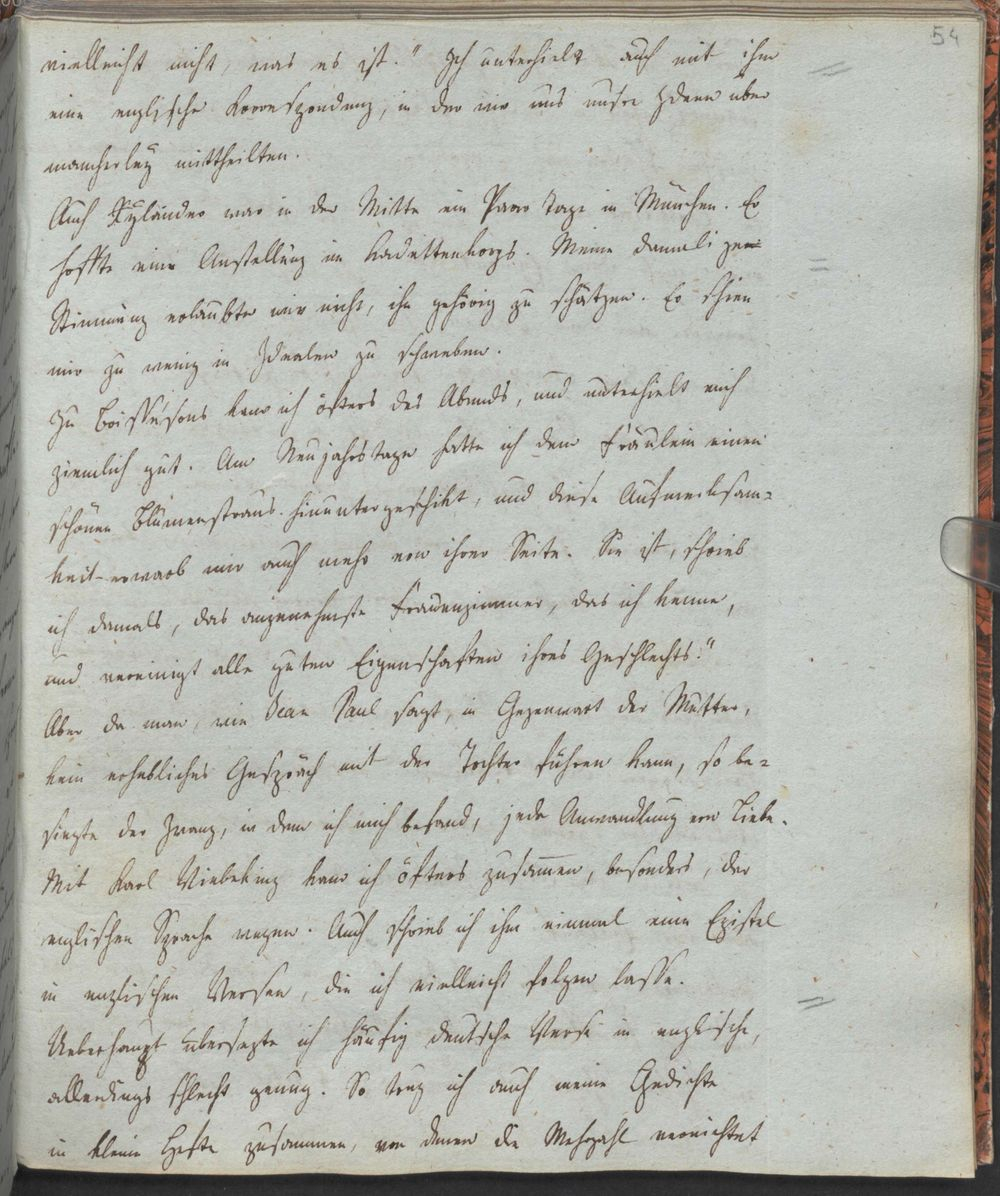 54
vielleicht nicht, was es ist." Ich unterhielt auch mit ihm
eine englische Korrespondenz, in der wir uns unsre Ideen über
mancherley mittheilten.
Auch Xylander war in der Mitte ein Paar Tage in München. Er
hoffte eine Anstellung im Kadettenkorps. Meine damali ge
Stimmung erlaubte mir nicht, ihn gehörig zu schätzen. Er schien
mir zu wenig in Idealen zu schweben.
Zu Boissésons kam ich öfters des Abends, und unterhielt mich
ziemlich gut. Am Neujahrstage hatte ich dem Fräulein einen
schönen Blumenstraus hinuntergeschikt, und diese Aufmerksam=
keit erwarb mir auch mehr von ihrer Seite. Sie ist, schrieb
ich damals, das angenehmste Frauenzimmer, das ich kenne,
und vereinigt alle guten Eigenschaften ihres Geschlechts."
Aber da man, wie Jean Paul sagt, in Gegenwart der Mutter,
kein erhebliches Gespräch mit der Tochter führen kann, so be=
siegte der Zwang, in dem ich mich befand, jede Anwandlung von Liebe.
Mit Karl Wiebeking kam ich öfters zusammen, besonders, der
englischen Sprache wegen. Auch schrieb ich ihm einmal eine Epistel
in englischen Versen, die ich vielleicht folgen lasse.
Ueberhaupt übersezte ich häufig deutsche Verse in englische,
allerdings schlecht genug. So trug ich auch meine Gedichte
in kleine Hefte zusammen, von denen die Mehrzahl vernichtet